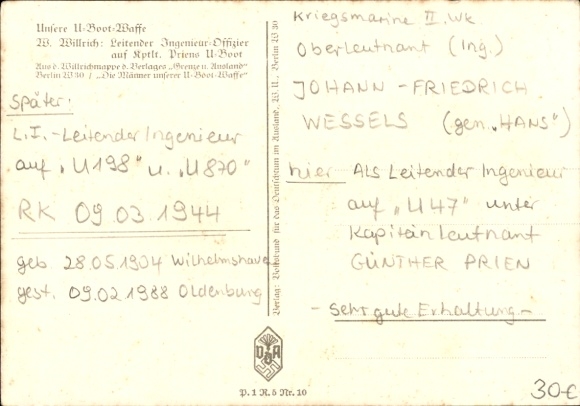 Unsere U-Boot-Waffe
W. Willrich: Leitender Ingenieur-Offizier
auf Kptlt. Priens U-Boot
Aus d. Willrichmappe d. Verlages „Grenze u. Ausland"
Berlin W 30 / „Die Männer unserer U-Boot-Waffe"
Später:
L.I.-Leitender Ingenieur
auf „U198" u. „U870"
RK 09.03.1944
geb 28.05.1904 Wilhelmshaven
gest. 09.02.1988 Oldenburg
Verlag: Volksbund für das Deutschtum im Ausland, W. U., Berlin W 30
VDA
P. 1 R. 6 Nr. 10
Kriegsmarine II. WK
Oberleutnant (Ing.)
JOHANN-FRIEDRICH
WESSELS (gen. „HANS")
hier Als Leitender Ingenieur
auf „U47" unter
Kapitänleutnant
GÜNTHER PRIEN
- Sehr gute Erhaltung -
30€